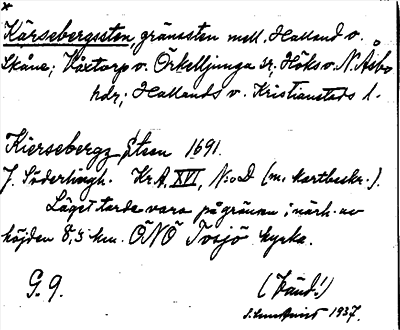 *
Kärsebergssten, gränssten mell. Halland o.
Skåne; Våxtorp o. Örkelljunga sr; Höks o. N. Åsbo
hdr; Hallands o. Kristianstads l.
Kiersebergz Steen 1691.
J. Söderlingh. Kr. A. XVI, N:o D (m. kartbeskr.).
Läget torde vara på gränsen i närh. av
höjden 8,5 km. ÖNÖ Tossjö kyrka.
G. 9. (Vänd!)
1937.